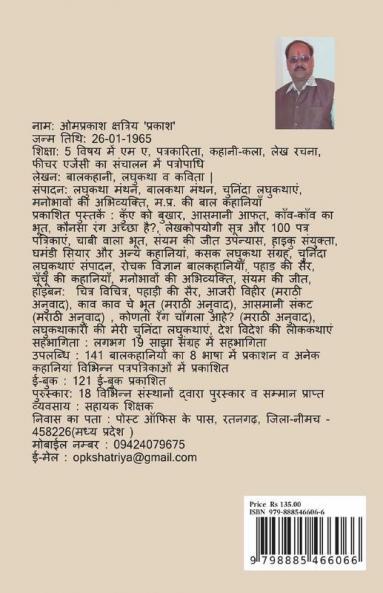 नाम: ओमप्रकाश क्षत्रिय 'प्रकाश'
जन्म तिथि: 26-01-1965
शिक्षा: 5 विषय में एम ए, पत्रकारिता, कहानी-कला, लेख रचना,
फीचर एजेंसी का संचालन में पत्रोपाधि
लेखन: बालकहानी, लघुकथा व कविता |
संपादन: लघुकथा मंथन, बालकथा मंथन, चुनिंदा लघुकथाएं,
मनोभावों की अभिव्यक्ति, म.प्र. की बाल कहानियाँ
प्रकाशित पुस्तकें : कुँए को बुखार, आसमानी आफत, काँव-काँव का
भूत, कौनसा रंग अच्छा है?, लेखकोपयोगी सूत्र और 100 पत्र
पत्रिकाएं, चाबी वाला भूत, संयम की जीत उपन्यास, हाइकु संयुक्ता,
घमंडी सियार और अन्य कहानियां, कसक लघुकथा संग्रह, चुनिंदा
लघुकथाएं संपादन, रोचक विज्ञान बालकहानियाँ, पहाड़ की सैर,
चूँचूँ की कहानियाँ, मनोभावों की अभिव्यक्ति, संयम की जीत,
हाइबन: चित्र विचित्र, पहाड़ी की सैर, आजरी विहीर (मराठी
अनुवाद), काव काव चे भूत (मराठी अनुवाद), आसमानी संकट
(मराठी अनुवाद) , कोणता रंग चांगला आहे? (मराठी अनुवाद),
लघुकथाकारों की मेरी चुनिंदा लघुकथाएं, देश विदेश की लोककथाएं
सहभागिता : लगभग 19 साझा संग्रह में सहभागिता
उपलब्धि : 141 बालकहानियों का 8 भाषा में प्रकाशन व अनेक
कहानियां विभिन्न पत्रपत्रिकाओं में प्रकाशित
ई-बुक : 121 ई-बुक प्रकाशित
पुरुस्कार: 18 विभिन्न संस्थानों द्वारा पुरस्कार व सम्मान प्राप्त
व्यवसाय : सहायक शिक्षक
निवास का पता : पोस्ट ऑफिस के पास, रतनगढ़, जिला-नीमच -
458226(मध्य प्रदेश )
मोबाईल नम्बर : 09424079675
ई-मेल : opkshatriya@gmail.com
Price Rs 135.00
ISBN 979-888546606-6
9 798885 466066